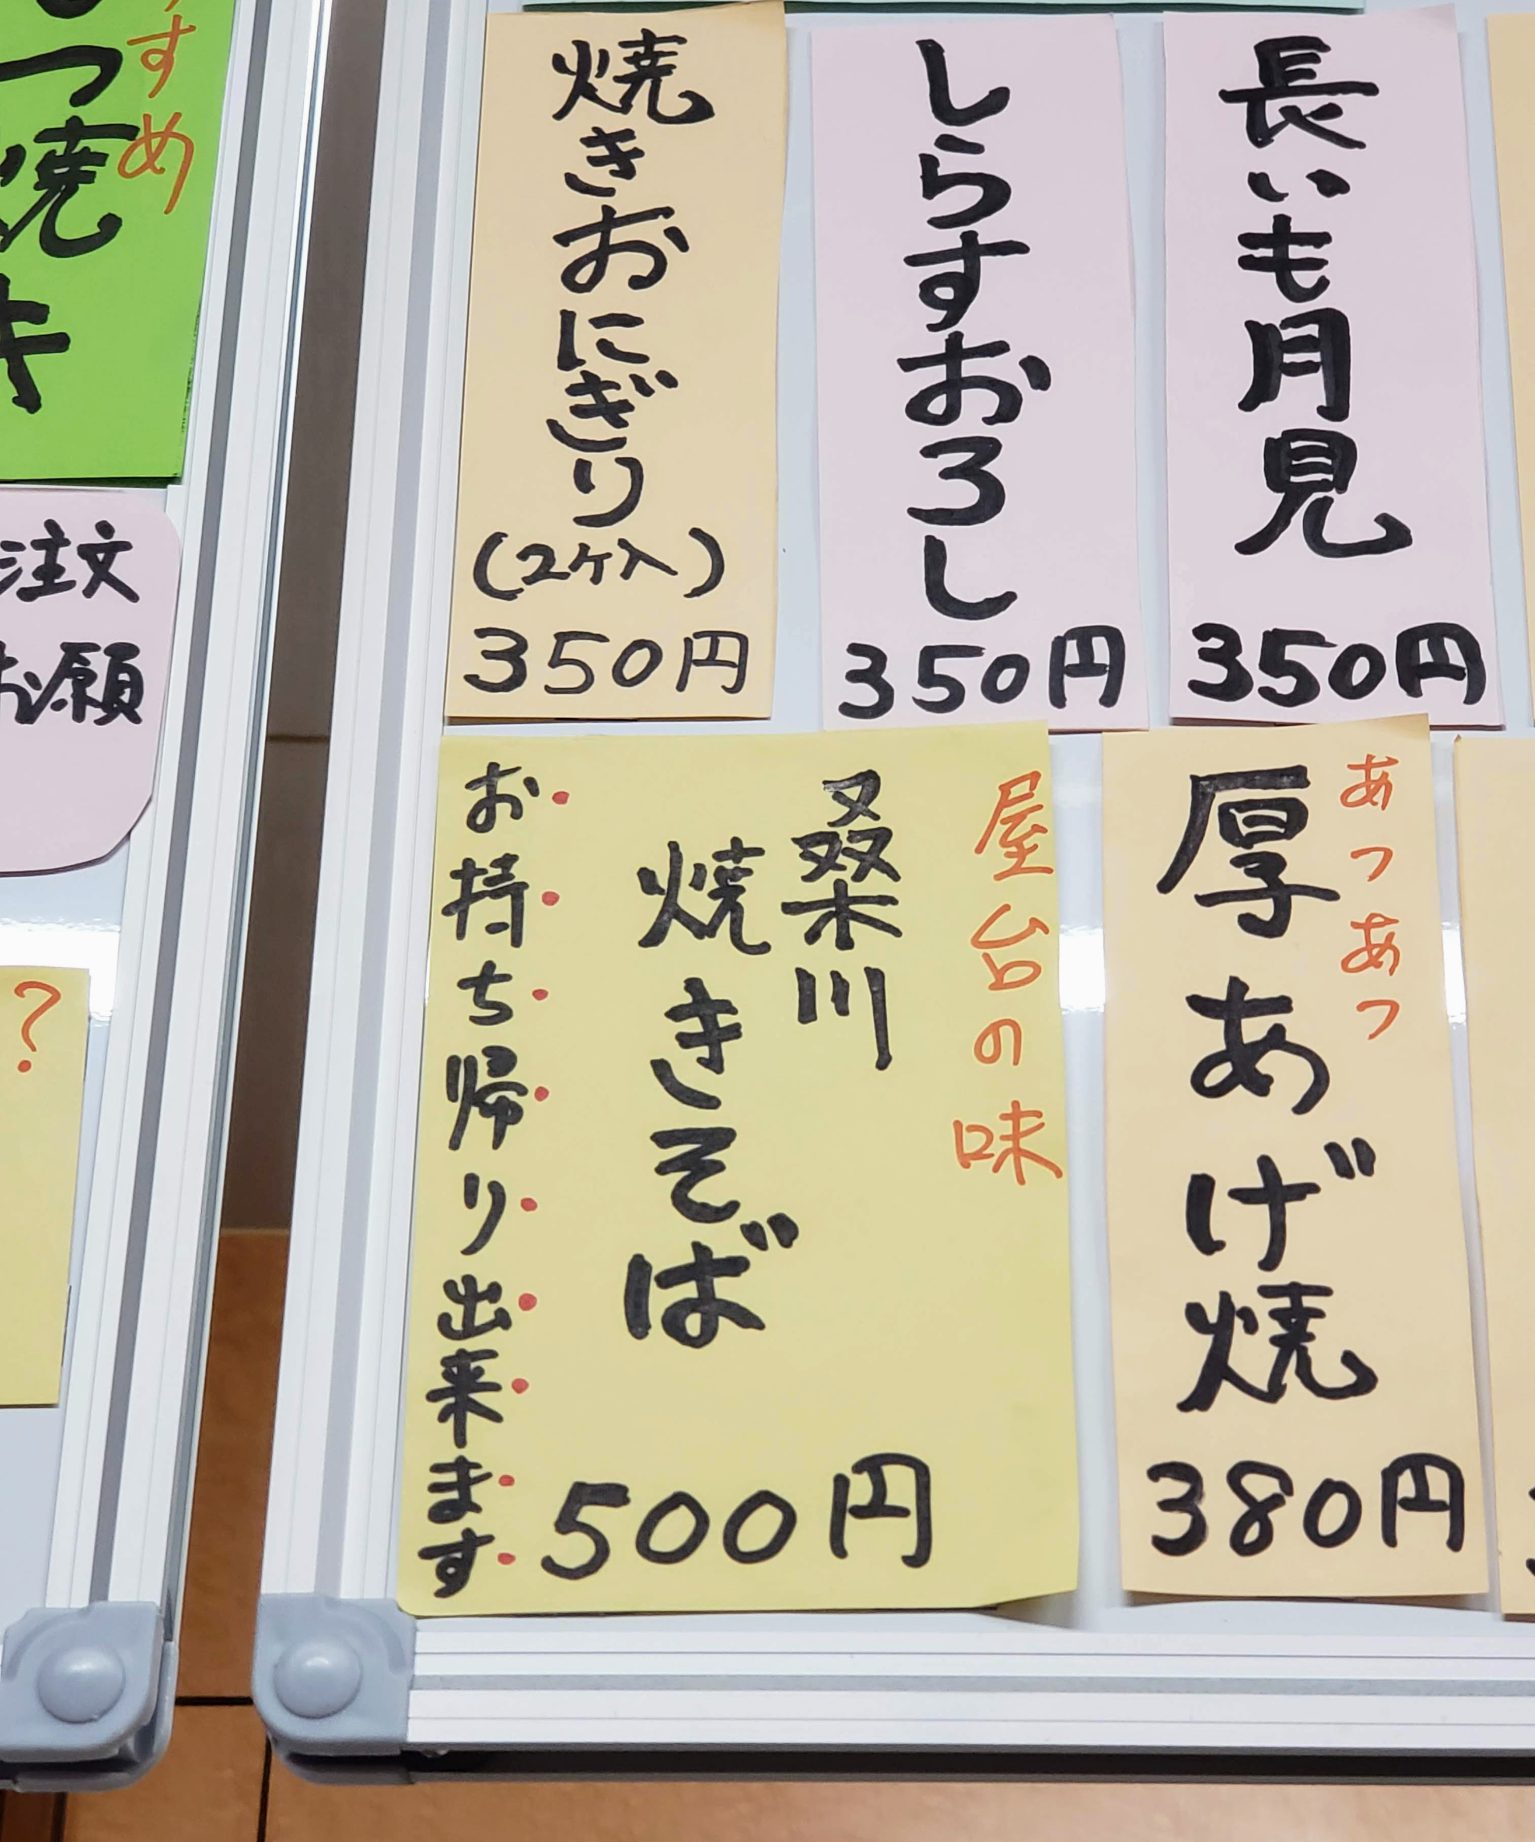 長いも月見
350円
しらすおろし
350円
焼きおにぎり
(2ケ入)
350円
あつあつ
厚あげ焼
380円
屋台の味
桑川
焼きそば
500円
お持ち帰り出来ます
すめ
つ焼き
注文
お願
?